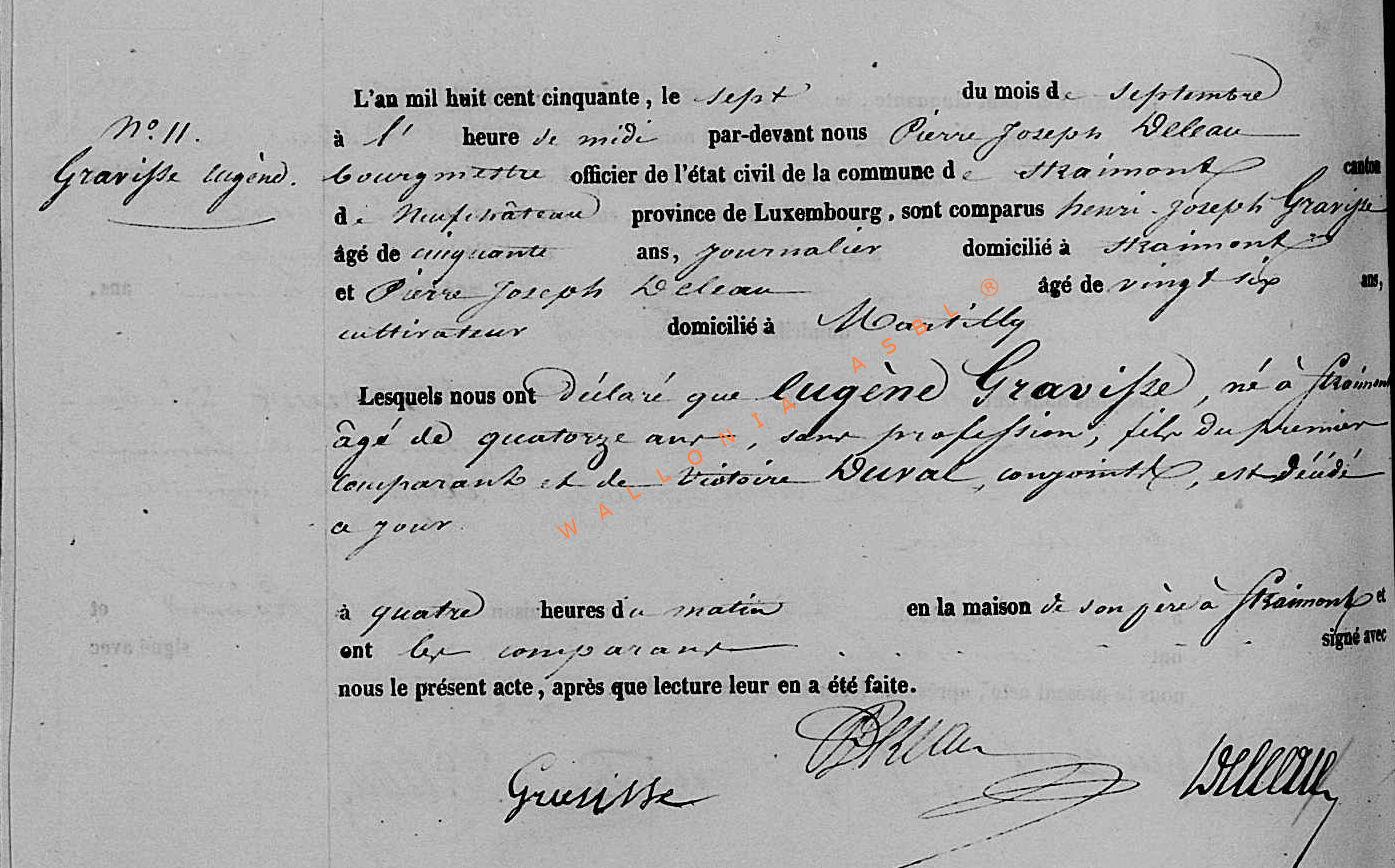 L'an mil huit cent cinquante, le sept du mois de septembre
N.o 11.
à l' heure de midi par-devant nous Pierre Joseph Deleau
Gravisse Eugène.
bourgmestre officier de l'état civil de la commune de Straimont canton
de Neufchâteau province de Luxembourg, sont comparus henri-Joseph Gravisse
âgé de cinquante ans, journalier domicilié à Straimont
et Pierre Joseph Deleau âgé de vingt six ans,
cultivateur domicilié à Martilly
Lesquels nous ont déclaré que Eugène Gravisse, né à Straimont
âgé de quatorze ans, sans profession, fils du premier
comparant et de Victoire Duval, conjoints, est décédé
ce jour
à quatre heures du matin en la maison de son père à Straimont et
ont les comparans signé avec
nous le présent acte, après que lecture leur en a été faite.
Gravisse Deleau
WALLONIA ASBL ®